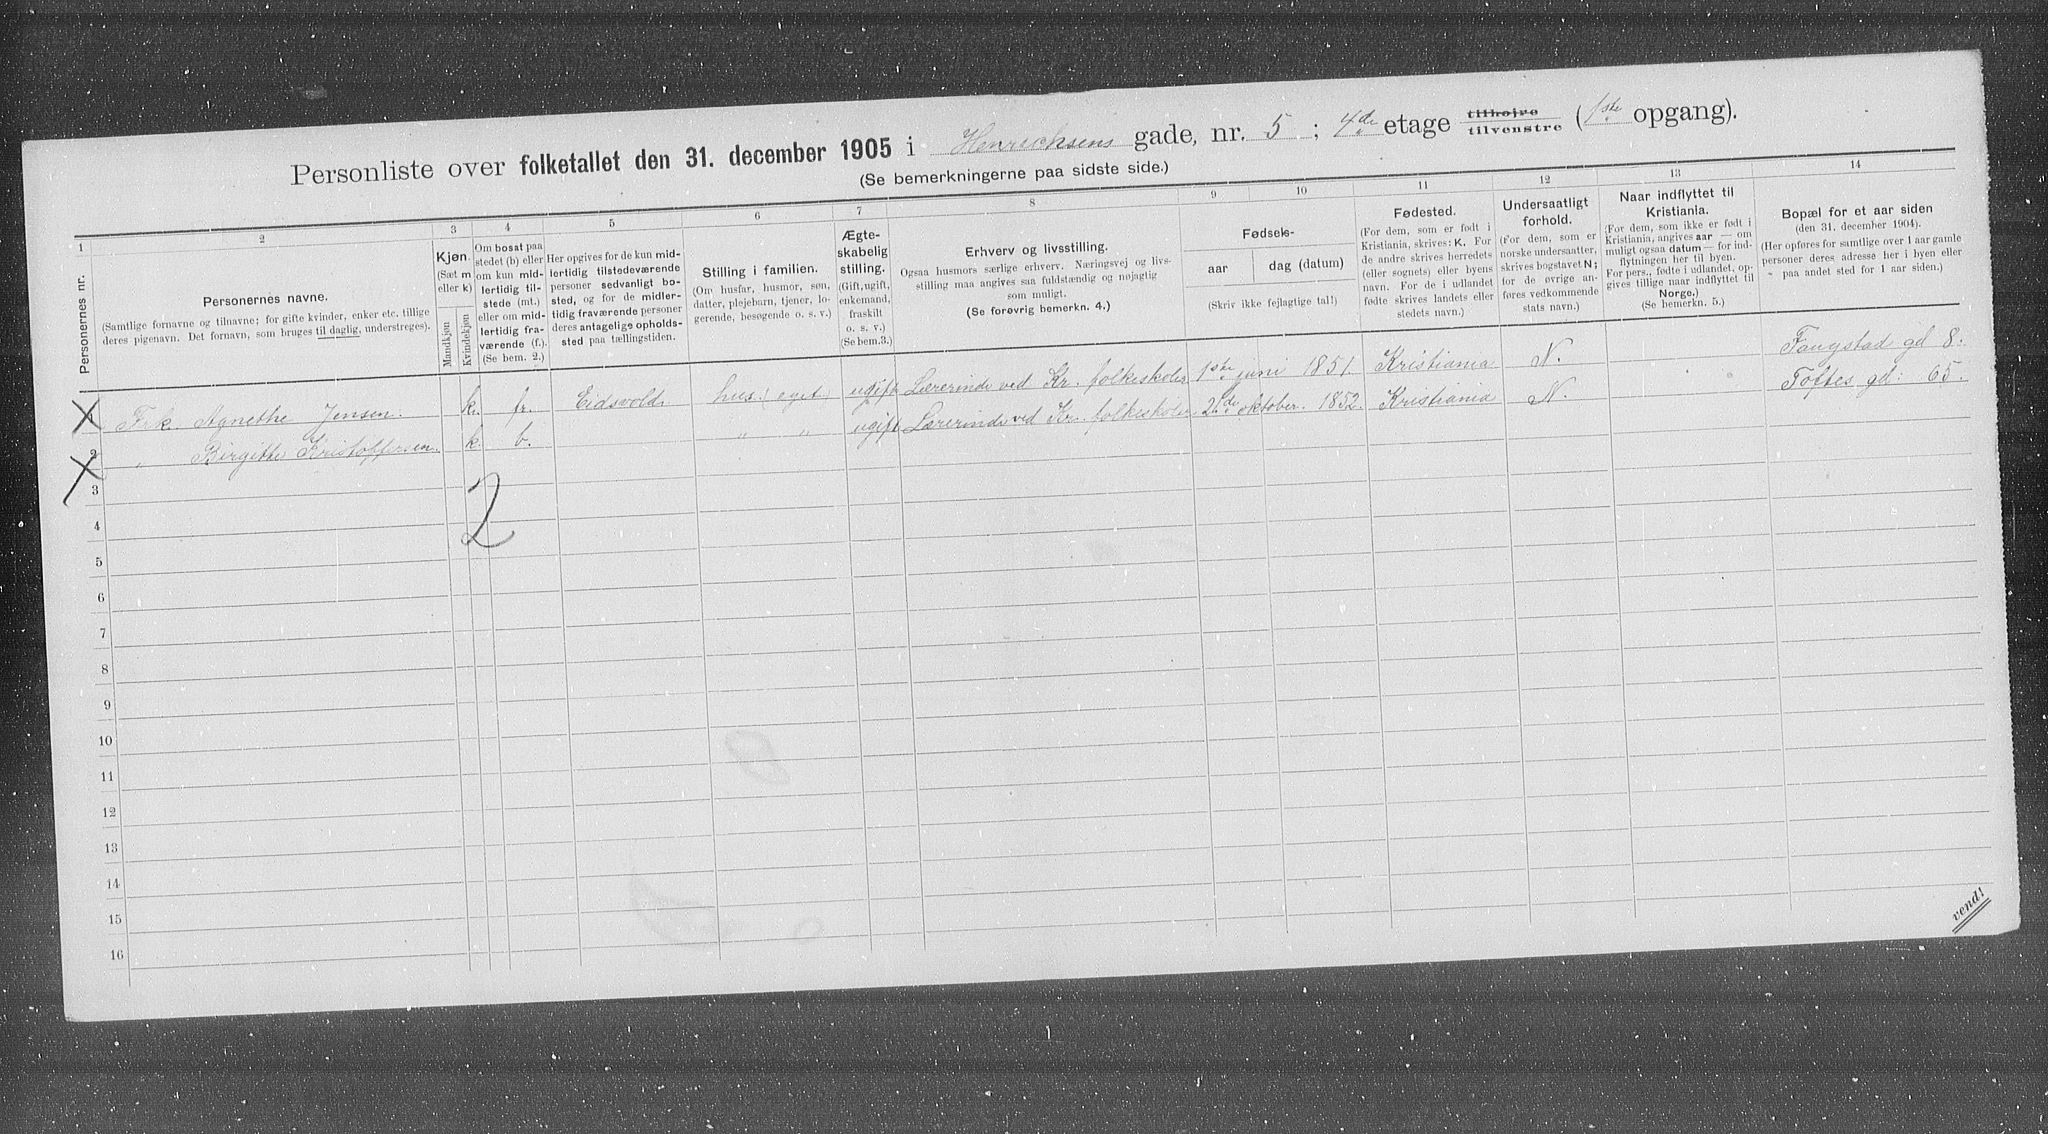 Personliste over folketallet den 31. december 1905 i Henrechsens gade, nr. 5 ; 4de etage tilhøjre tilvenstre (1ste opgang).
(Se bemerkningerne paa sidste side.)
1 2 3 4 5 6 7 8 9 10 11 12 13 14
Personernes nr.
Personernes navne.
(Samtlige fornavne og tilnavne; for gifte kvinder, enker etc. tillige
deres pigenavn. Det fornavn, som bruges til daglig, understreges).
Kjøn.
(Sæt m
eller k)
Mandkjøn
Kvindekjøn
Om bosat paa
stedet (b) eller
om kun mid-
lertidig til-
stede (mt.)
eller om mid-
lertidig fra-
værende (f.).
(Se bem. 2.)
Her opgives for de kun mid-
lertidig tilstedeværende
personer sedvanligt bo-
sted, og for de midler-
tidig fraværende personer
deres antagelige opholds-
sted paa tællingstiden.
Stilling i familien.
(Om husfar, husmor, søn,
datter, plejebarn, tjener, lo-
gerende, besøgende o. s. v.)
Ægte-
skabelig
stilling.
(Gift, ugift,
enkemand,
fraskilt
o. s. v.)
(Se bem.3.)
Erhverv og livsstilling.
Ogsaa husmors særlige erhverv. Næringsvej og livs-
stilling maa angives saa fuldstændig og nøjagtig
som muligt.
(Se forøvrig bemerkn. 4.)
Fødsels-
aar
dag (datum)
(Skriv ikke fejlagtige tal!)
Fødested.
(For dem, som er født i
Kristiania, skrives: K. For
de andre skrives herredets
(eller sognets) eller byens
navn. For de i udlandet
fødte skrives landets eller
stedets navn.)
Undersaatligt
forhold.
(For dem, som er
norske undersaatter,
skrives bogstavet N;
for de øvrige an-
føres vedkommende
stats navn.)
Naar indflyttet til
Kristiania.
(For dem, som ikke er født i
Kristiania, angives aar — om
muligt ogsaa datum — for ind-
flytningen her til byen.
For pers., fødte i udlandet, op-
gives tillige naar indflyttet til
Norge.)
(Se bemerkn. 5.)
Bopæl for et aar siden
(den 31. december 1904).
(Her opføres for samtlige over 1 aar gamle
personer deres adresse her i byen eller
paa andet sted for 1 aar siden.)
Frk Agnethe Jensen. k. fr. Eidsvold hus. (eget) ugift Lærerinde ved Kr. folkeskoler 1ste juni 1851. Kristiania N. Faugstad gd 8.
2 „ Birgitte Kristoffersen. k. b. „ „ ugift Lærerinde ved Kr. folkeskoler 2de oktober. 1852. Kristiania N. Toftes gd: 65.
3
2
4
5
6
7
8
9
10
11
12
13
14
15
16
vend!